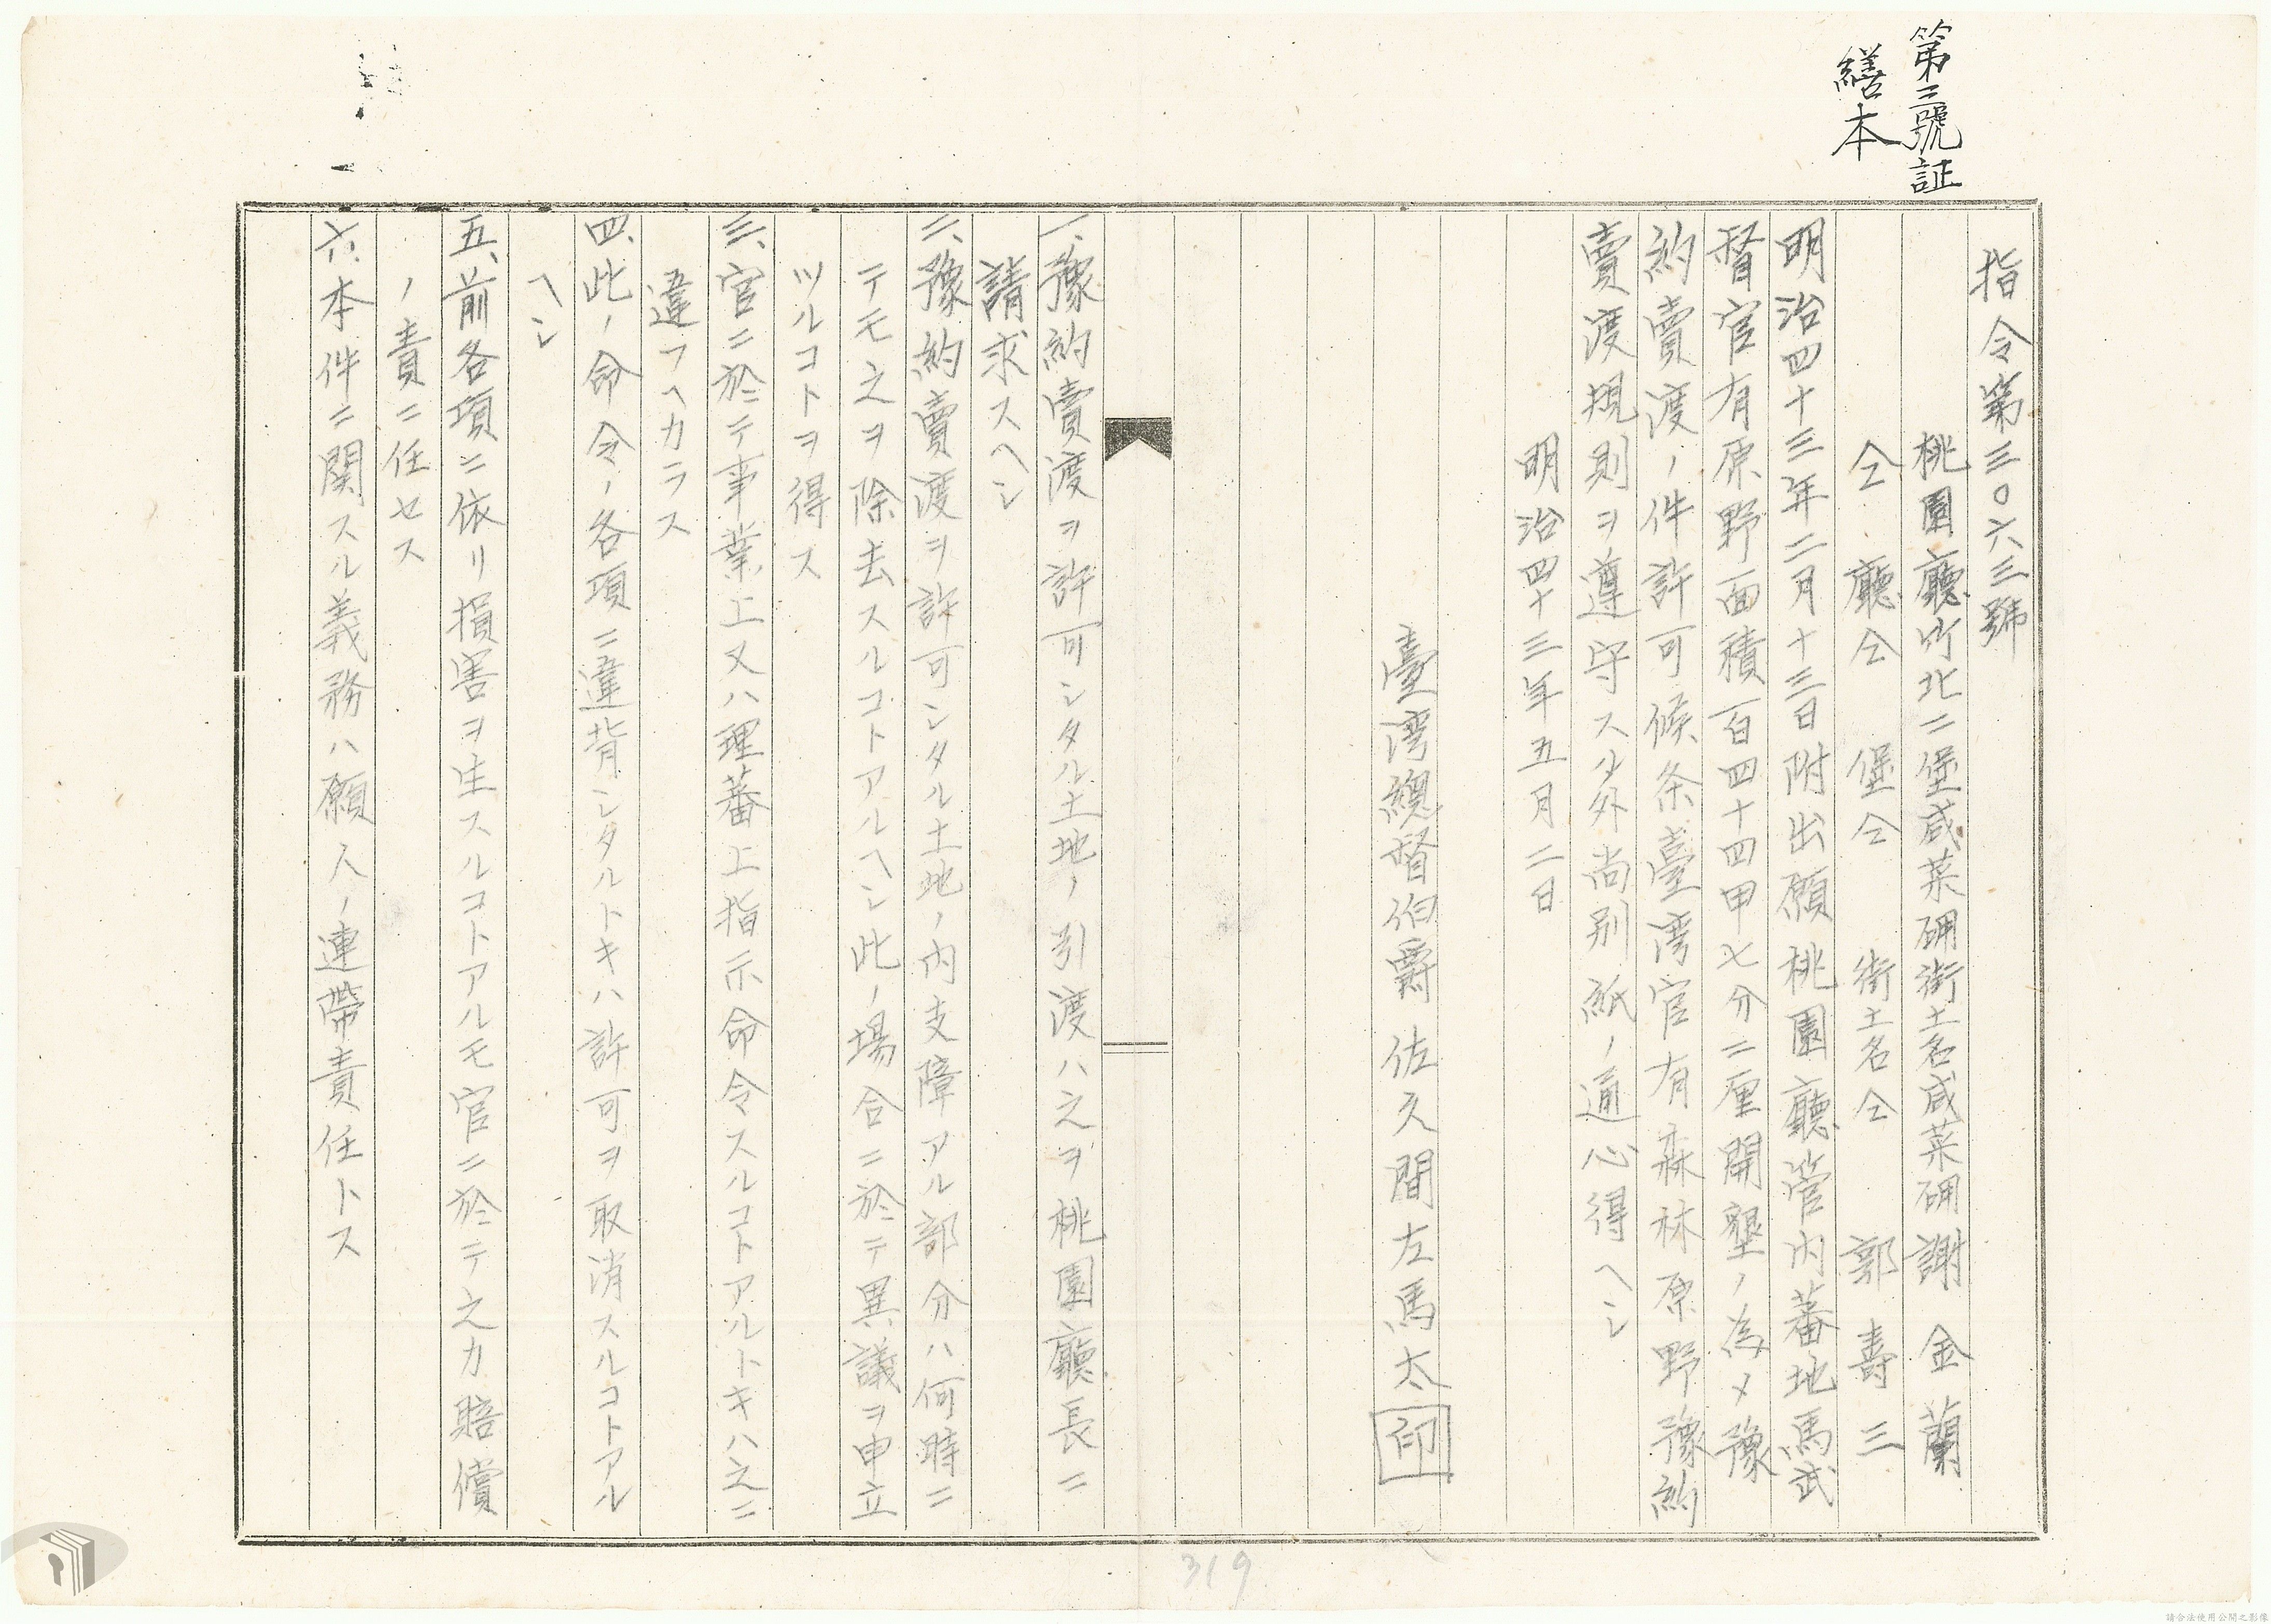 第三號証
繕本
指令第三〇六三號
桃園廳竹北二堡咸菜硼街土名咸菜硼 謝金蘭
仝廳仝堡仝街土名仝 郭壽三
明治四十三年二月十三日附出願桃園廳管内蕃地馬武
督官有原野面積百四十四甲七分二厘開墾ノ為メ豫
約賣渡ノ件許可候条臺湾官有森林原野豫約
賣渡規則ヲ遵守スル外尚別紙ノ通心得ヘシ
明治四十三年五月二日
臺湾總督伯爵佐久間左馬太 印
一、豫約賣渡ヲ許可シタル土地ノ引渡ハ之ヲ桃園廳長ニ
請求スヘシ
二、豫約賣渡ヲ許可シタル土地ノ内支障アル部分ハ何時ニ
テモ之ヲ除去スルコトアルヘシ此ノ場合ニ於テ異議ヲ申立
ツルコトヲ得ス
三、官ニ於テ事業上又ハ理蕃上指示命令スルコトアルトキハ之ニ
違フヘカラス
四、此ノ命令ノ各項ニ違背シタルトキハ許可ヲ取消スルコトアル
ヘシ
五、前各項ニ依リ損害ヲ生スルコトアルモ官ニ於テ之カ賠償
ノ責ニ任セス
六、本件ニ関スル義務ハ願人ノ連帶責任トス
319
請合法使用公開之影像